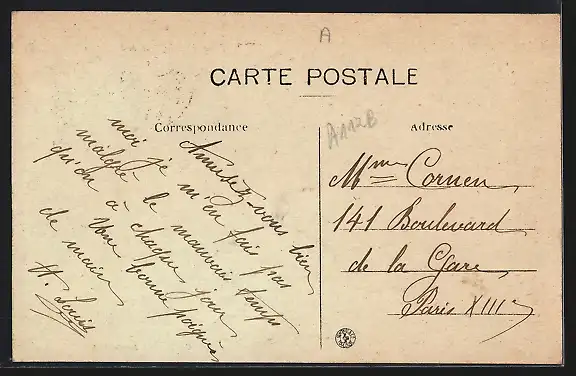 A
CARTE POSTALE
A112B
Correspondance
Amusez-vous bien
moi je m'en fais pas
malgré le mauvais temps
qu'on a chaque jour
Une bonne poignée
de main
H. Louis
Adresse
Mme Cornen
141 Boulevard
de la Gare
Paris XIIIe